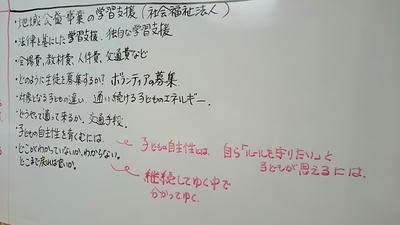 ・地域公益事業の学習支援(社会福祉法人)
・法律を基にした学習支援、独自な学習支援
・会場費、教材費、人件費、交通費など
・どのように生徒を募集するか? ボランティアの募集
・対象となる子どもの違い、通い続ける子どものエネルギー.
・どうやって通って来るか、交通手段.
・子どもの自主性を育くむには.
子どもの自主性とは、自ら「ルールを守りたい」と
子どもが思えるには.
・どこがわかっていないか、わからない。
どこまで戻れば良いか。
継続してゆく中で
分かってゆく.